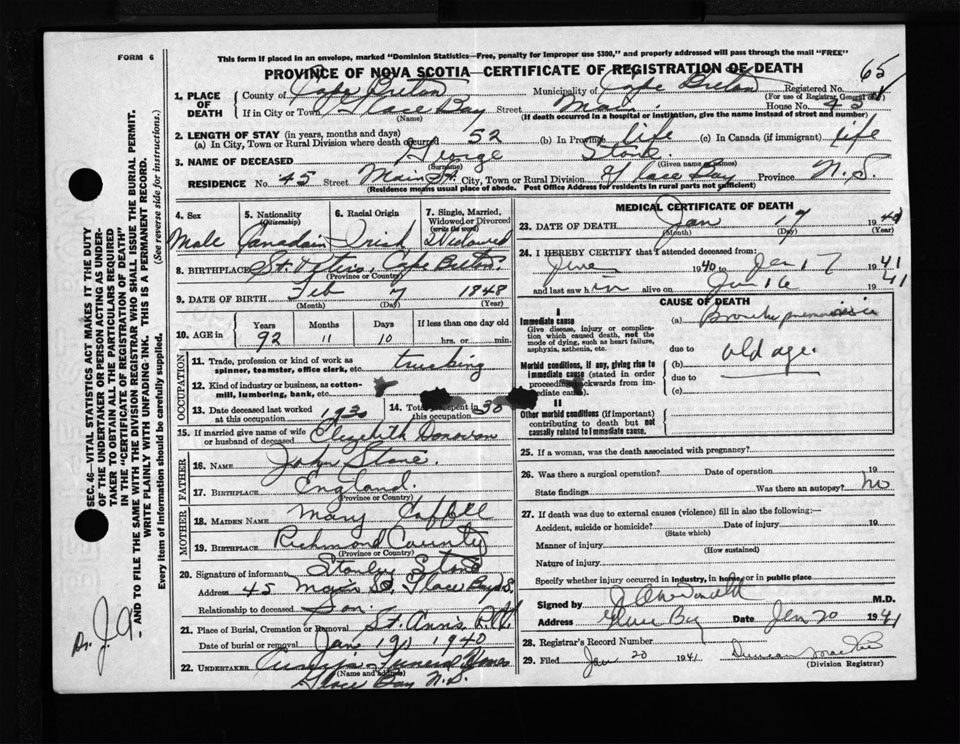 FORM 6
This form if placed in an envelope, marked "Dominion Statistics—Free, penalty for improper use $300," and properly addressed will pass through the mail "FREE"
PROVINCE OF NOVA SCOTIA—CERTIFICATE OF REGISTRATION OF DEATH
65
1. PLACE OF DEATH
County of Cape Breton Municipality of Cape Breton Registered No.
(For use of Registrar General only)
If in City or Town Glace Bay Street Main House No. 45
(Name) (If death occurred in a hospital or institution, give the name instead of street and number)
2. LENGTH OF STAY (in years, months and days)
(a) In City, Town or Rural Division where death occurred 52 (b) In Province life (c) In Canada (if immigrant) life
3. NAME OF DECEASED George Stone
(Surname) (Given name or names)
RESIDENCE No. 45 Street Main St. City, Town or Rural Division Glace Bay Province N.S.
(Residence means usual place of abode. Post Office Address for residents in rural parts not sufficient)
4. Sex Male
5. Nationality (Citizenship) Canadain
6. Racial Origin Irish
7. Single, Married, Widowed or Divorced (write the word) Widowed
8. BIRTHPLACE St. Peters Cape Breton.
(Province or Country)
9. DATE OF BIRTH Feb 7 1848
(Month) (Day) (Year)
10. AGE in Years Months Days If less than one day old
92 11 10 hrs. or min.
OCCUPATION
11. Trade, profession or kind of work as spinner, teamster, office clerk, etc. trucking
12. Kind of industry or business, as cotton-mill, lumbering, bank, etc.
13. Date deceased last worked at this occupation 1930
14. Total spent in this occupation 30
15. If married give name of wife or husband of deceased Elizabeth Donovan
FATHER
16. NAME John Stone.
17. BIRTHPLACE England.
(Province or Country)
MOTHER
18. MAIDEN NAME Mary
19. BIRTHPLACE Richmond County
(Province or Country)
20. Signature of informant Stanley Stone
Address 45 Main St. Glace Bay N.S.
Relationship to deceased Son.
21. Place of Burial, Cremation or Removal St. Ann's
Date of burial or removal Jan 19 1940
22. UNDERTAKER Funeral Home
(Name and address)
Glace Bay N.S.
MEDICAL CERTIFICATE OF DEATH
23. DATE OF DEATH Jan 17 19
(Month) (Day) (Year)
24. I HEREBY CERTIFY that I attended deceased from:
June 1940 to Jan 17 1941
and last saw him alive on Jan 16 1941
CAUSE OF DEATH
I
Immediate cause
Give disease, injury or complication which caused death, not the mode of dying, such as heart failure, asphyxia, asthenia, etc.
(a) Broncho pneumonia
due to old age.
Morbid conditions, if any, giving rise to immediate cause (stated in order proceeding backwards from immediate cause).
(b)
due to
(c)
II
Other morbid conditions (if important) contributing to death but not causally related to immediate cause.
25. If a woman, was the death associated with pregnancy?
26. Was there a surgical operation? Date of operation 19
State findings Was there an autopsy? no
27. If death was due to external causes (violence) fill in also the following:—
Accident, suicide or homicide? Date of injury 19
(State which)
Manner of injury
(How sustained)
Nature of injury
Specify whether injury occurred in industry, in home, or in public place
Signed by M.D.
Address Glace Bay Date Jan 20 1941
28. Registrar's Record Number
29. Filed Jan 20 1941 Duncan
(Division Registrar)
SEC. 46—VITAL STATISTICS ACT MAKES IT THE DUTY
OF THE UNDERTAKER OR PERSON ACTING AS UNDER-
TAKER TO OBTAIN ALL THE PARTICULARS REQUIRED
IN THE "CERTIFICATE OF REGISTRATION OF DEATH"
AND TO FILE THE SAME WITH THE DIVISION REGISTRAR WHO SHALL ISSUE THE BURIAL PERMIT.
WRITE PLAINLY WITH UNFADING INK. THIS IS A PERMANENT RECORD.
Every item of information should be carefully supplied. (See reverse side for instructions.)